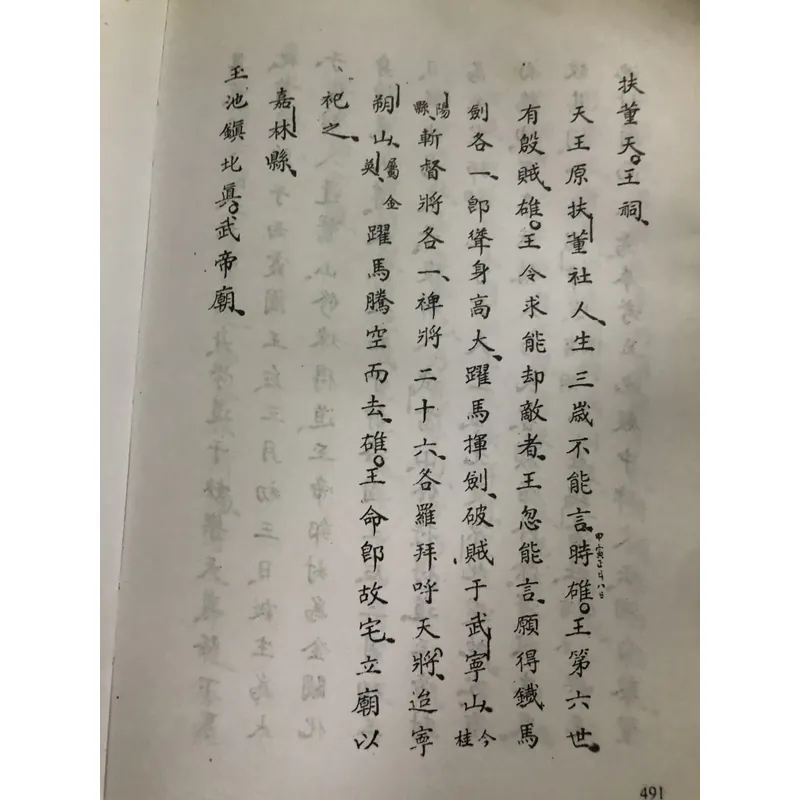 扶董天王祠
天王原扶董社人生三歲不能言時甲寅正月八日雄王第六世
有殷賊雄王令求能却敵者王忽能言願得鐵馬
劍各一卽聳身高大躍馬揮劍破賊于武寧山今桂
陽縣斬督將各一裨將二十六各羅拜呼天將迨寧
朔山屬金英躍馬騰空而去雄王命卽故宅立廟以
祀之
嘉林縣
玉池鎮北眞武帝廟
491